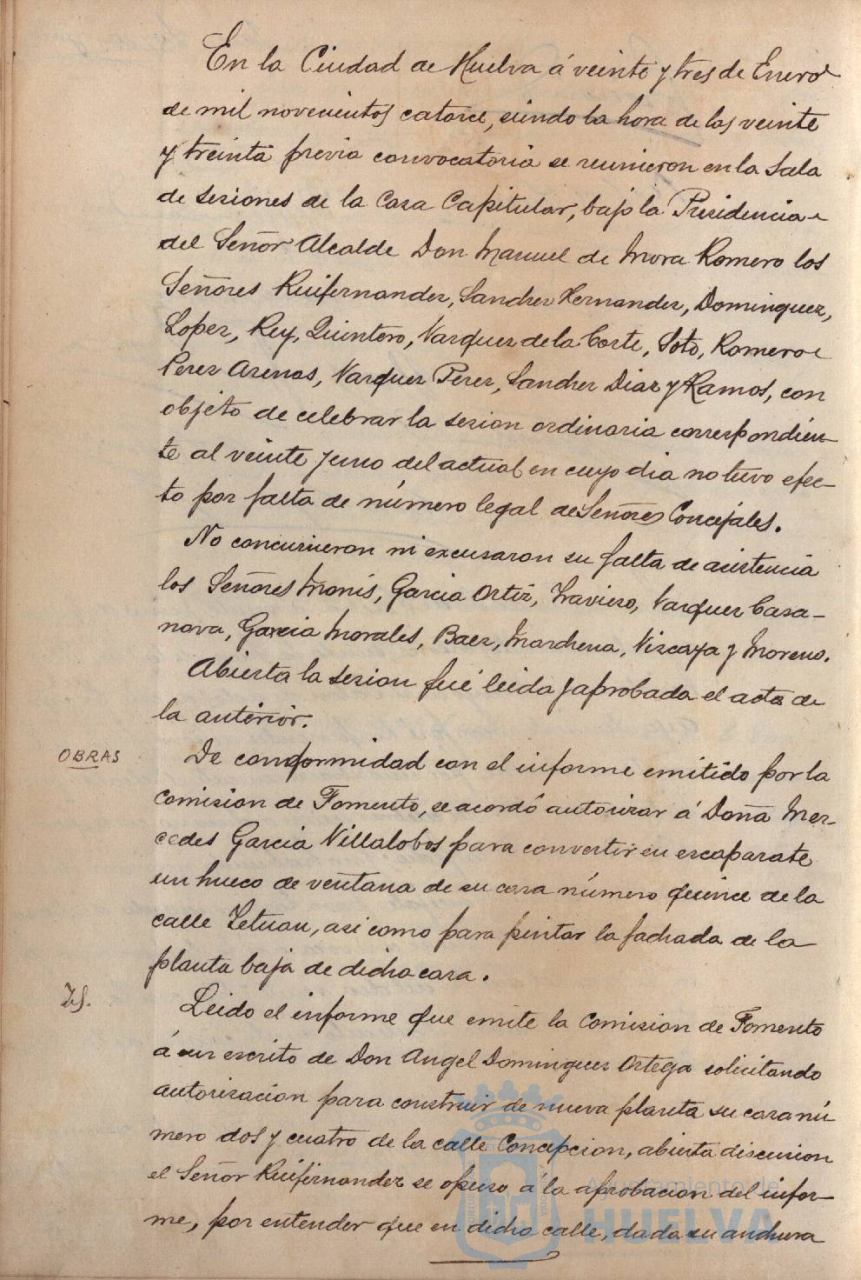 En la Ciudad de Huelva á veinte y tres de Enero
de mil novecientos catorce, siendo la hora de las veinte
y treinta previa convocatoria se reunieron en la Sala
de sesiones de la Casa Capitular, bajo la Presidencia
del Señor Alcalde Don Manuel de Mora Romero los
Señores Ruifernandez, Sanchez Hernandez, Dominguez,
Lopez, Rey, Quintero, Vazquez de la Corte, Soto, Romero
Perez Arenas, Vazquez Perez, Sanchez Diaz y Ramos, con
objeto de celebrar la sesion ordinaria correspondien-
te al veinte y uno del actual en cuyo dia no tuvo efec-
to por falta de número legal de Señores Concejales.
No concurrieron ni excusaron su falta de asistencia
los Señores Monís, Garcia Ortiz, Travieso, Vazquez Casa-
nova, Garcia Morales, Baez, Marchena, Vizcaya y Moreno.
Abierta la sesion fué leida y aprobada el acta de
la anterior.
OBRAS
De conformidad con el informe emitido por la
Comision de Fomento, se acordó autorizar á Doña Mer-
cedes Garcia Villalobos para convertir en escaparate
un hueco de ventana de su casa número quince de la
calle Tetuan, asi como para pintar la fachada de la
planta baja de dicha casa.
Id.
Leido el informe que emite la Comision de Fomento
á un escrito de Don Angel Dominguez Ortega solicitando
autorizacion para construir de nueva planta su casa nú
mero dos y cuatro de la calle Concepcion, abierta discusion
el Señor Ruifernandez se opuso á la aprobacion del infor-
me, por entender que en dicha calle, dada su anchura
Ayuntamiento de
HUELVA